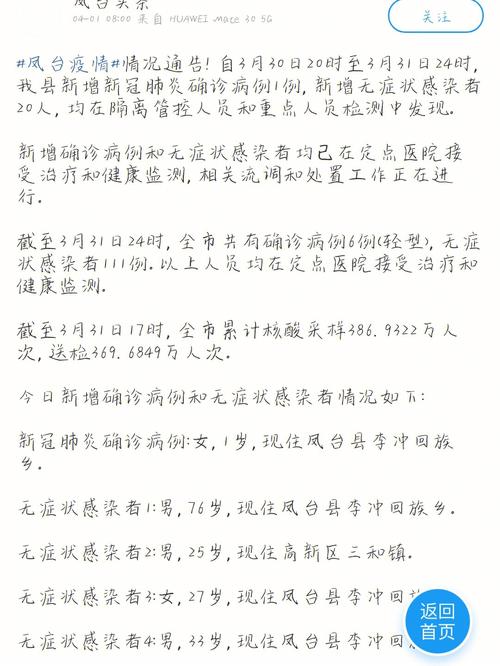 凤台头条
04-01 08:00 来自 HUAWEI Mate 30 5G
关注
#凤台疫情#情况通告！自3月30日20时至3月31日24时,
我县新增新冠肺炎确诊病例1例, 新增无症状感染者
20人, 均在隔离管控人员和重点人员检测中发现。
新增确诊病例和无症状感染者均已在定点医院接
受治疗和健康监测, 相关流调和处置工作正在进
行。
截至3月31日24时, 全市共有确诊病例6例(轻型), 无症
状感染者111例. 以上人员均在定点医院接受治疗和
健康监测。
截至3月31日17时, 全市累计核酸采样386.9322万人
次, 送检369.6849万人次。
今日新增确诊病例和无症状感染者情况如下:
新冠肺炎确诊病例:女, 1岁, 现住凤台县李冲回族
乡。
无症状感染者1:男, 76岁, 现住凤台县李冲回族乡。
无症状感染者2:男, 25岁, 现住高新区三和镇。
无症状感染者3:女, 27岁, 现住凤台县李冲回族
无症状感染者4:男, 33岁, 现住凤台县李冲回
返回
首页